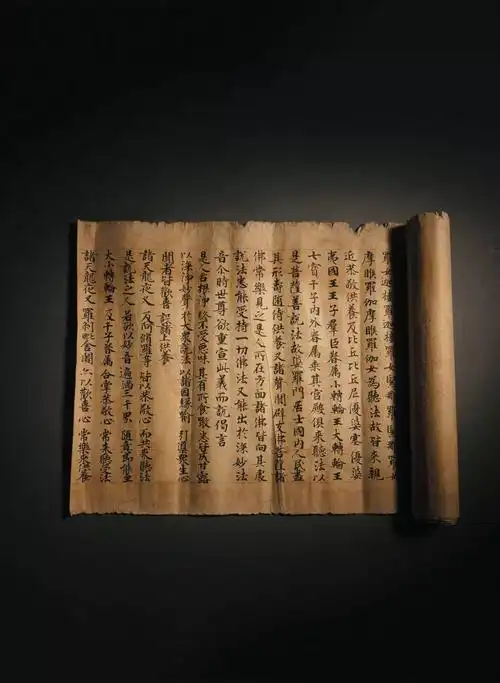 羅女迦樓羅迦樓羅女緊那羅緊那羅女
摩睺羅伽摩睺羅伽女為聽法故皆來親
近恭敬供養及比丘比丘尼優婆塞優婆
夷國王王子羣臣眷属小轉輪王大轉輪王
七寳千子內外眷属乘其宮殿俱來聽法以
是菩薩善說法故婆羅門居士國內人民盡
其形壽随侍供養又諸聲聞辟支佛菩薩諸
佛常樂見之是人所在方面諸佛皆向其處
說法悉能受持一切佛法又能出於深妙法
音尒時世尊欲重宣此義而說偈言
是人舌根淨 終不受惡味 其有所食噉 悉皆成甘露
以深淨妙聲 於大衆說法 以諸因緣喻 引導衆生心
聞者皆歡喜 設諸上供養
諸天龍夜叉 及阿脩羅等 皆以恭敬心 而共來聽法
是說法之人 若欲以妙音 遍滿三千界 随意即能至
大小轉輪王 及千子眷属 合掌恭敬心 常來聽受法
諸天龍夜叉 羅剎毗舍闍 亦以歡喜心 常樂來供養